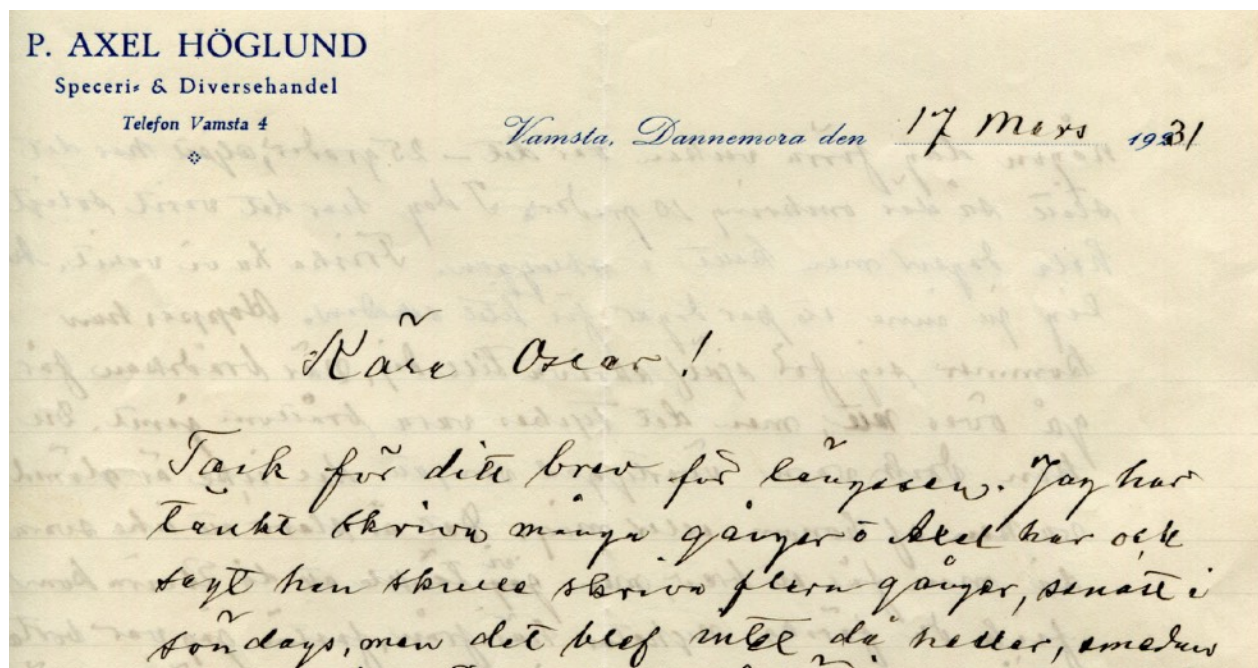 P. AXEL HÖGLUND
Speceri= & Diversehandel
Telefon Vamsta 4
Vamsta, Dannemora den 17 Mars 1931
Kära Oscar!
Tack för ditt brev för längesen. Jag har
tänkt skriva många gånger o Axel har ock
sagt han skulle skriva flera gånger, senast i
söndags, men det blef intet då heller, emedan